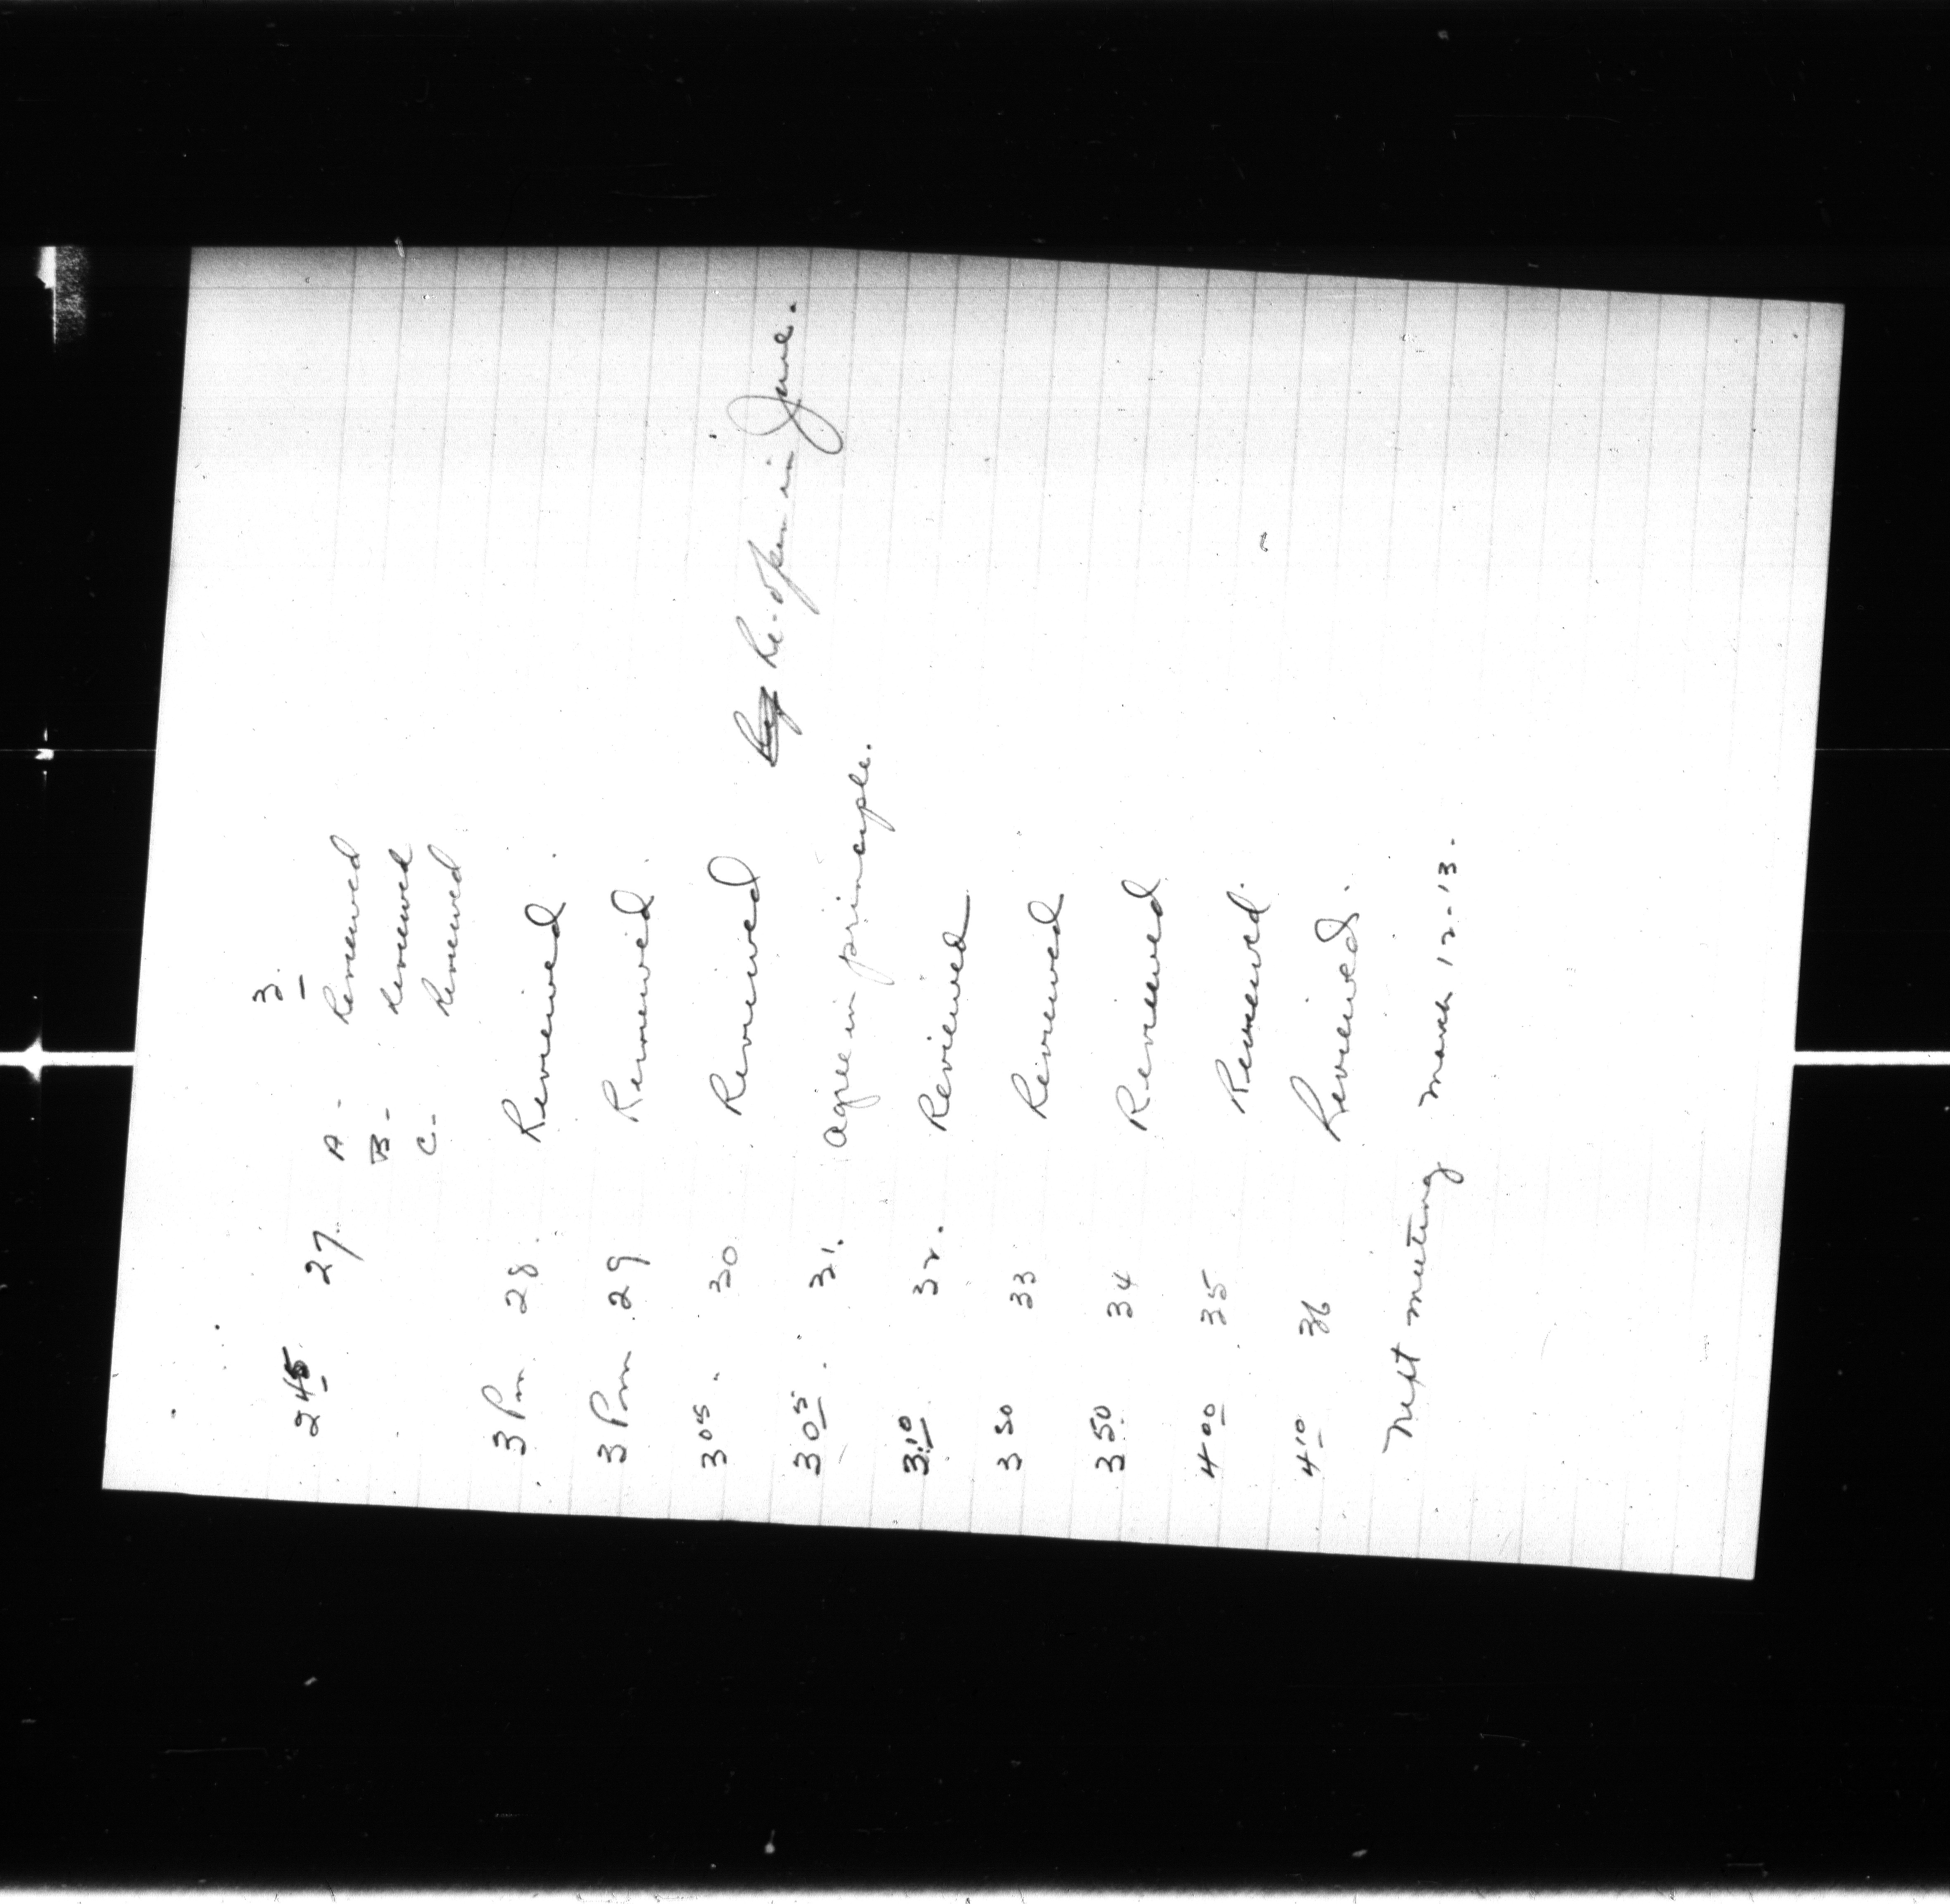 3.
2 45 27. A - Reviewed
B - Reviewed
C - Reviewed
3 Pm 28. Reviewed.
3 Pm 29 Reviewed.
3 05. 30 Reviewed Re-open in June.
3 05. 31. Agree in principle.
3.10 32. Reviewed
3 30 33 Reviewed
3 50 34 Reviewed
4 00 35 Reviewed.
4 10 36 Reviewed.
Next meeting March 12-13.